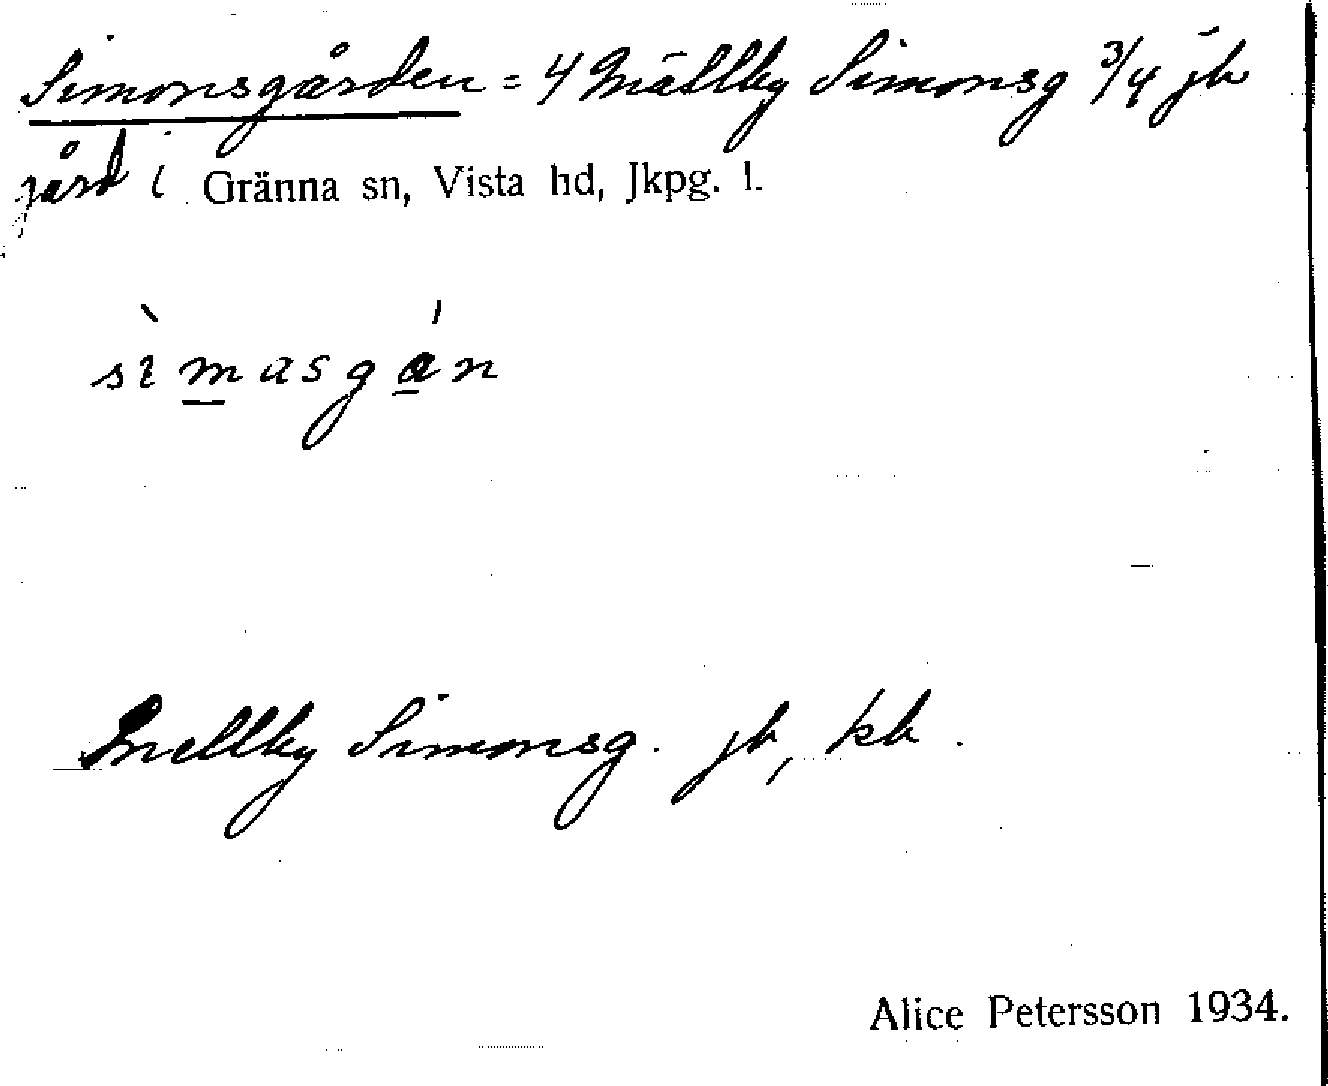 Simonsgården = 4 Mällby Simonsg 3/4 jb
gård i Gränna sn, Vista hd, Jkpg. l.
sìmasgán
Mellby Simonsg. jb, kb.
Alice Petersson 1934.